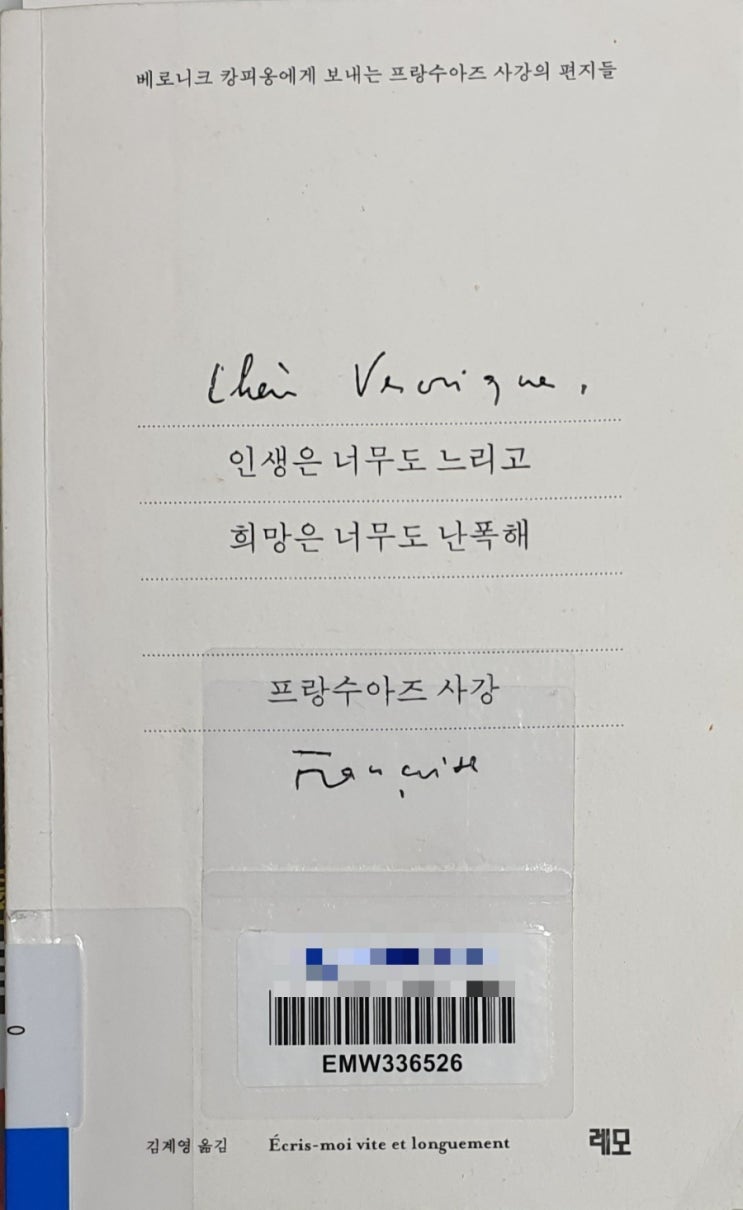 베로니크 캉피옹에게 보내는 프랑수아즈 사강의 편지들
Chère Véronique,
인생은 너무도 느리고
희망은 너무도 난폭해
프랑수아즈 사강
Françoise
EMW336526
김계영 옮김 Écris-moi vite et longuement 레모
0